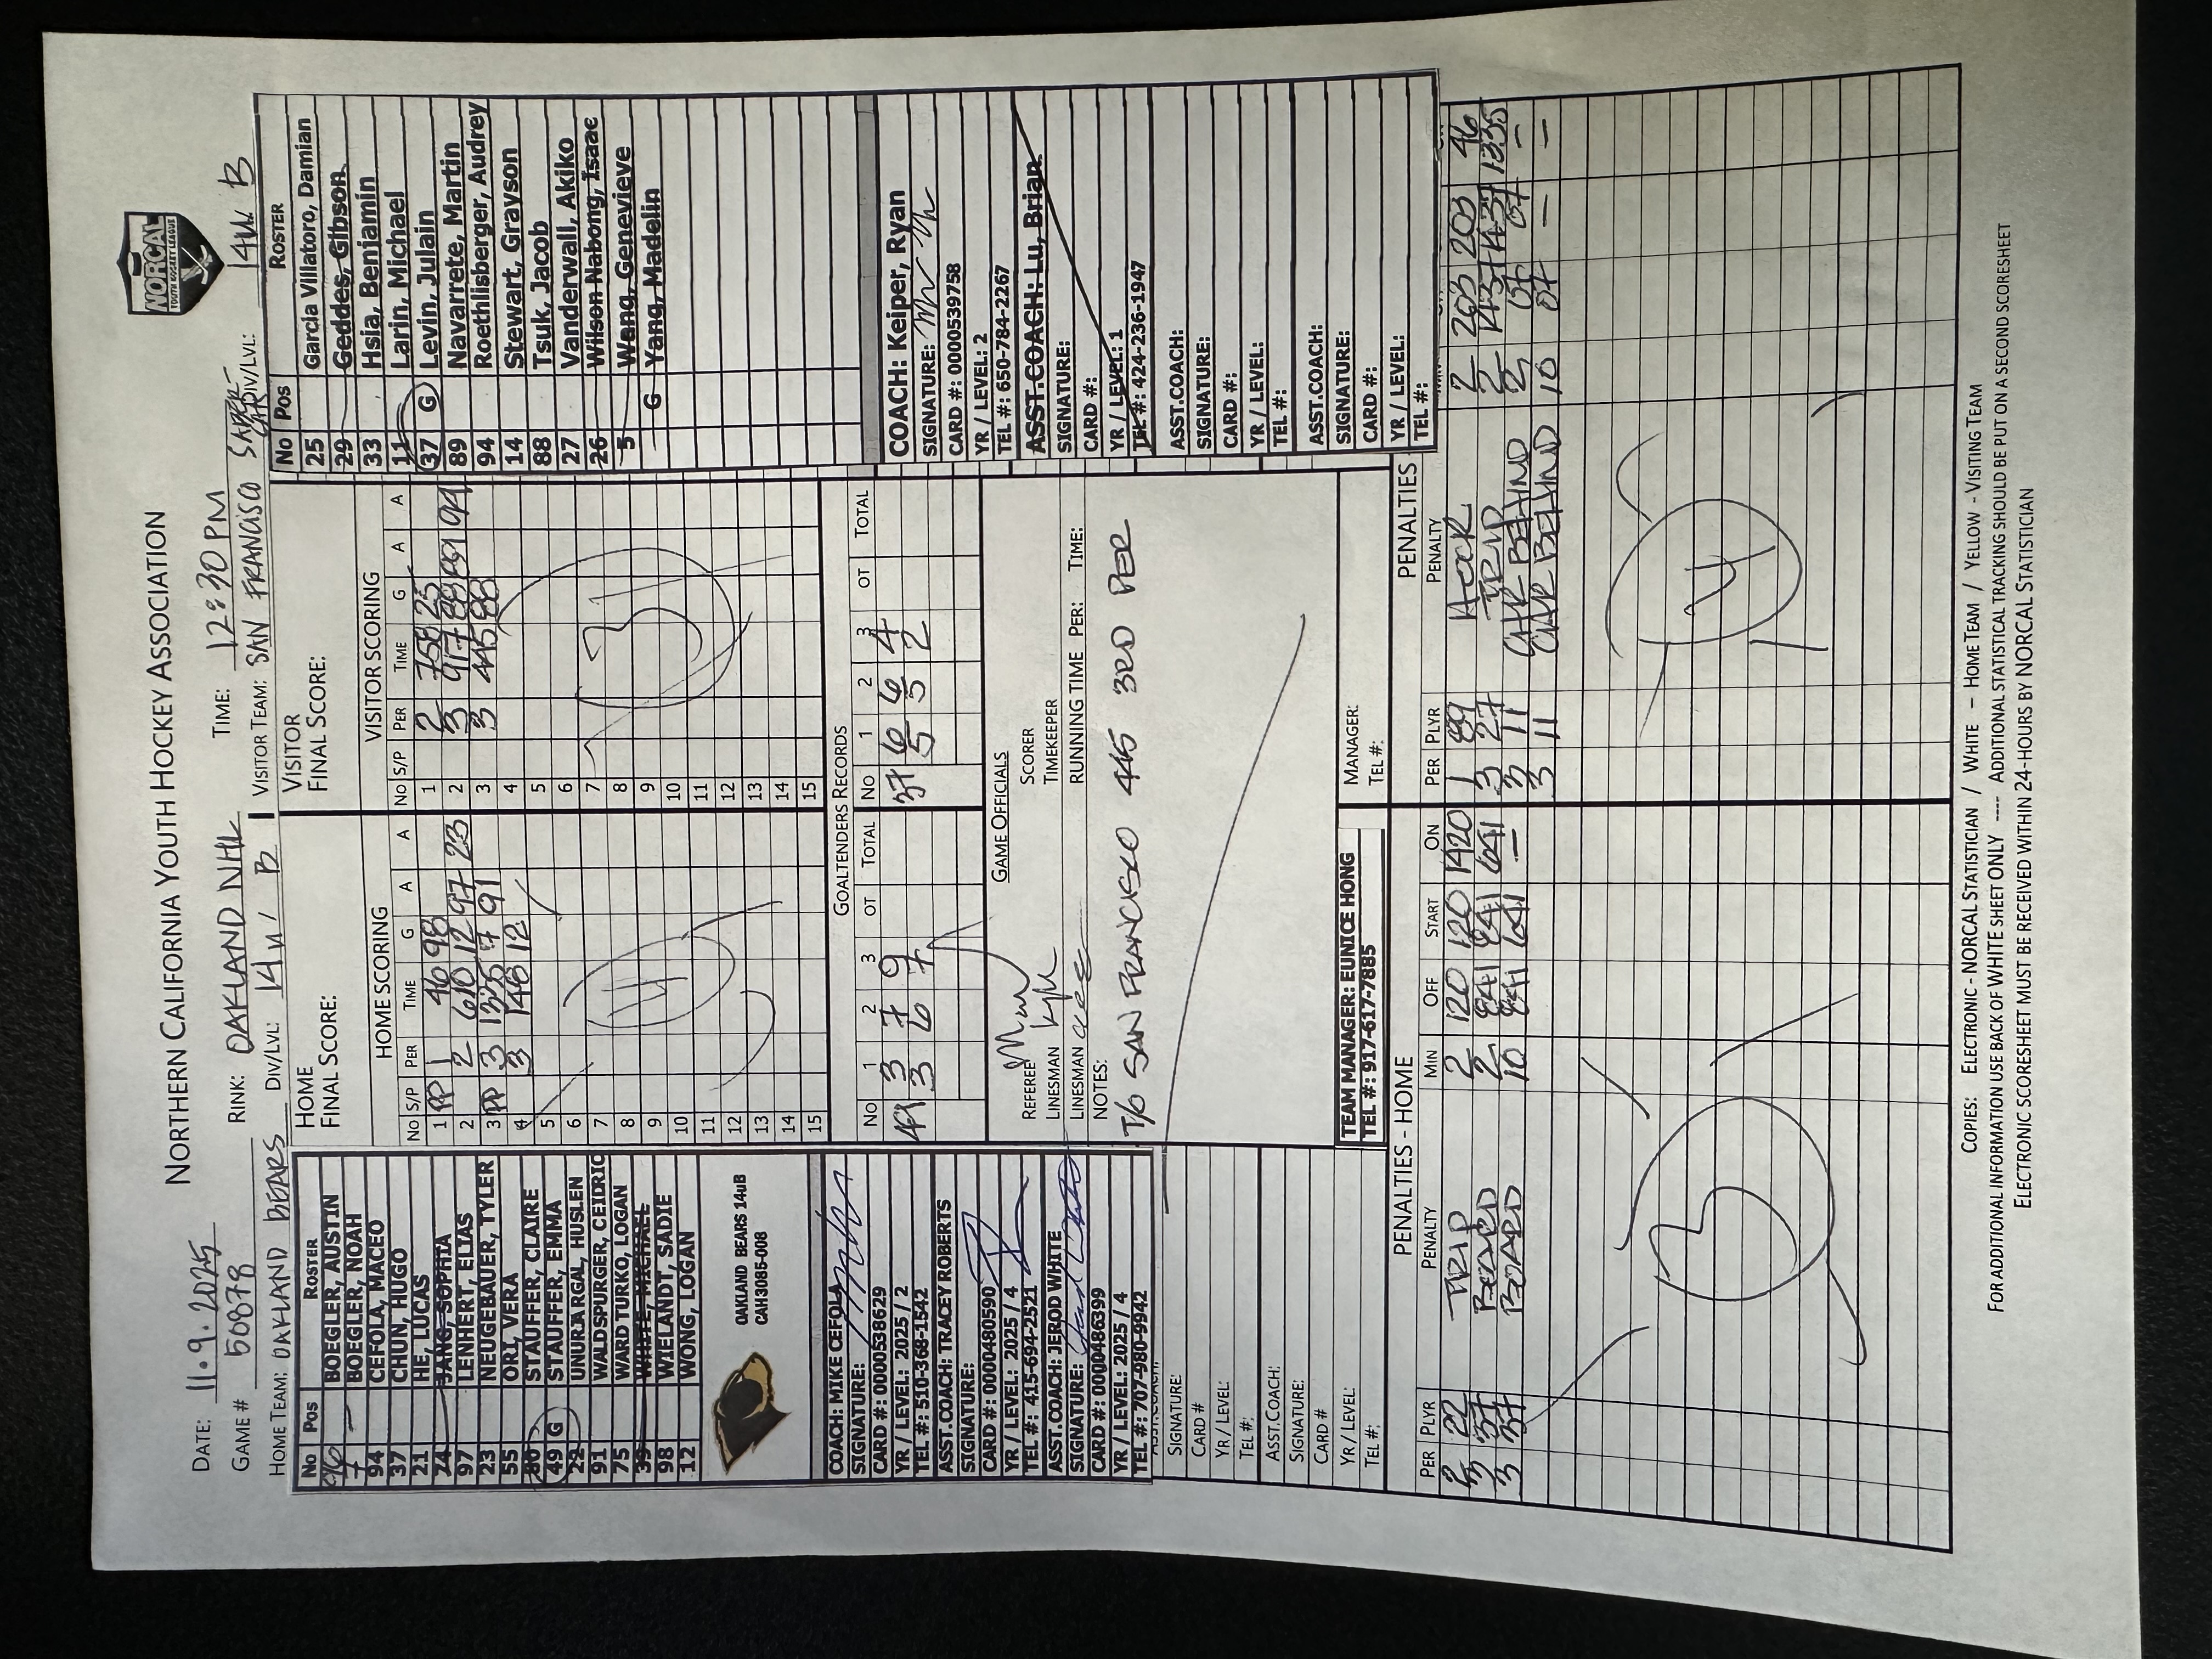 NORTHERN CALIFORNIA YOUTH HOCKEY ASSOCIATION
NORCAL
YOUTH HOCKEY LEAGUE
DATE: 11.9.2025
GAME # 50878 RINK: OAKLAND NHL TIME: 12:30 PM
HOME TEAM: OAKLAND BEARS DIV/LVL: 14U / B VISITOR TEAM: SAN FRANCISCO DIV/LVL: 14U B
No Pos ROSTER
96 BOEGLER, AUSTIN
7 BOEGLER, NOAH
94 CEFOLA, MACEO
37 CHUN, HUGO
21 HE, LUCAS
74 JANG, SOPHIA
97 LENHERT, ELIAS
23 NEUGEBAUER, TYLER
55 ORI, VERA
80 STAUFFER, CLAIRE
49 G STAUFFER, EMMA
22 UNURJARGAL, HUSLEN
91 WALDSPURGER, CEIDRIC
75 WARD TURKO, LOGAN
39 WHITE, MICHAEL
98 WIELANDT, SADIE
12 WONG, LOGAN
OAKLAND BEARS 14uB
CAH3085-008
COACH: MIKE CEFOLA
SIGNATURE:
CARD #: 0000538629
YR / LEVEL: 2025 / 2
TEL #: 510-368-1542
ASST.COACH: TRACEY ROBERTS
SIGNATURE:
CARD #: 0000480590
YR / LEVEL: 2025 / 4
TEL #: 415-694-2521
ASST.COACH: JEROD WHITE
SIGNATURE:
CARD #: 0000486399
YR / LEVEL: 2025 / 4
TEL #: 707-980-9942
SIGNATURE:
CARD #
YR / LEVEL:
TEL #:
ASST.COACH:
SIGNATURE:
CARD #
YR / LEVEL:
TEL #:
HOME
FINAL SCORE:
HOME SCORING
No S/P PER TIME G A A
1 PP 1 46 98
2 2 610 12 97 23
3 PP 3 1335 7 91
4 3 146 12
5
6
7
8
9
10
11
12
13
14
15
4
VISITOR
FINAL SCORE:
VISITOR SCORING
No S/P PER TIME G A A
1 2 758 25
2 3 917 88 89 94
3 3 445 88
4
5
6
7
8
9
10
11
12
13
14
15
3
GOALTENDERS RECORDS
No 1 2 3 OT TOTAL No 1 2 3 OT TOTAL
49 3 7 9 37 6 6 4
3 6 7 5 5 2
GAME OFFICIALS
REFEREE SCORER
LINESMAN Kyle TIMEKEEPER
LINESMAN RUNNING TIME PER: TIME:
NOTES:
T/O SAN FRANCISCO 445 3RD PER
TEAM MANAGER: EUNICE HONG
TEL #: 917-617-7885
MANAGER:
TEL #:
No Pos ROSTER
25 Garcia Villatoro, Damian
29 Geddes, Gibson
33 Hsia, Benjamin
11 Larin, Michael
37 G Levin, Julain
89 Navarrete, Martin
94 Roethlisberger, Audrey
14 Stewart, Grayson
88 Tsuk, Jacob
27 Vanderwall, Akiko
26 Wilson Nabong, Isaac
5 Wang, Genevieve
G Yang, Madelin
COACH: Keiper, Ryan
SIGNATURE:
CARD #: 0000539758
YR / LEVEL: 2
TEL #: 650-784-2267
ASST.COACH: Lu, Brian
SIGNATURE:
CARD #:
YR / LEVEL: 1
TEL #: 424-236-1947
ASST.COACH:
SIGNATURE:
CARD #:
YR / LEVEL:
TEL #:
ASST.COACH:
SIGNATURE:
CARD #:
YR / LEVEL:
TEL #:
PENALTIES - HOME
PER PLYR PENALTY MIN OFF START ON
2 22 TRIP 2 120 120 1420
3 37 BOARD 2 841 841 641
3 37 BOARD 10 841 641 —
3
PENALTIES
PER PLYR PENALTY
1 89 HOOK 2 203 203 46
3 27 TRIP 2 1431 1431 1335
3 11 CHK BEHIND 2 07 07 —
3 11 CHK BEHIND 10 07 — —
4
COPIES: ELECTRONIC - NORCAL STATISTICIAN / WHITE – HOME TEAM / YELLOW - VISITING TEAM
FOR ADDITIONAL INFORMATION USE BACK OF WHITE SHEET ONLY ---- ADDITIONAL STATISTICAL TRACKING SHOULD BE PUT ON A SECOND SCORESHEET
ELECTRONIC SCORESHEET MUST BE RECEIVED WITHIN 24-HOURS BY NORCAL STATISTICIAN